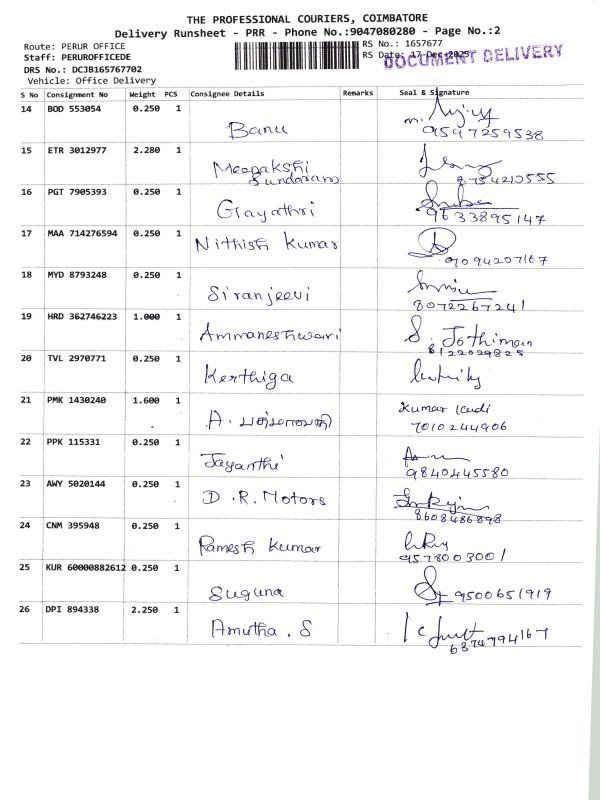 THE PROFESSIONAL COURIERS, COIMBATORE
Delivery Runsheet - PRR - Phone No.:9047080280 - Page No.:2
Route: PERUR OFFICE
RS No.: 1657677
Staff: PERUROFFICEDE
RS Date: 17-Dec-2025
DOCUMENT DELIVERY
DRS No.: DCJB165767702
Vehicle: Office Delivery
S No Consignment No Weight PCS Consignee Details Remarks Seal & Signature
14 BOD 553054 0.250 1
Banu
9597259538
15 ETR 3012977 2.280 1
Meenakshi
Sundaram
8754210555
16 PGT 7905393 0.250 1
Gayathri
9633895147
17 MAA 714276594 0.250 1
Nithish Kumar
9094207167
18 MYD 8793248 0.250 1
Siranjeevi
8072267241
19 HRD 362746223 1.000 1
Ammaneshwari
S. Jothimani
8122029825
20 TVL 2970771 0.250 1
Kerthiga
21 PMK 1430240 1.600 1
A.
Kumar
7010244906
22 PPK 115331 0.250 1
Jayanthi
9840445580
23 AWY 5020144 0.250 1
D.R. Motors
8608486898
24 CNM 395948 0.250 1
Ramesh Kumar
9578003001
25 KUR 60000882612 0.250 1
Suguna
9500651919
26 DPI 894338 2.250 1
Amutha . S
6374794167